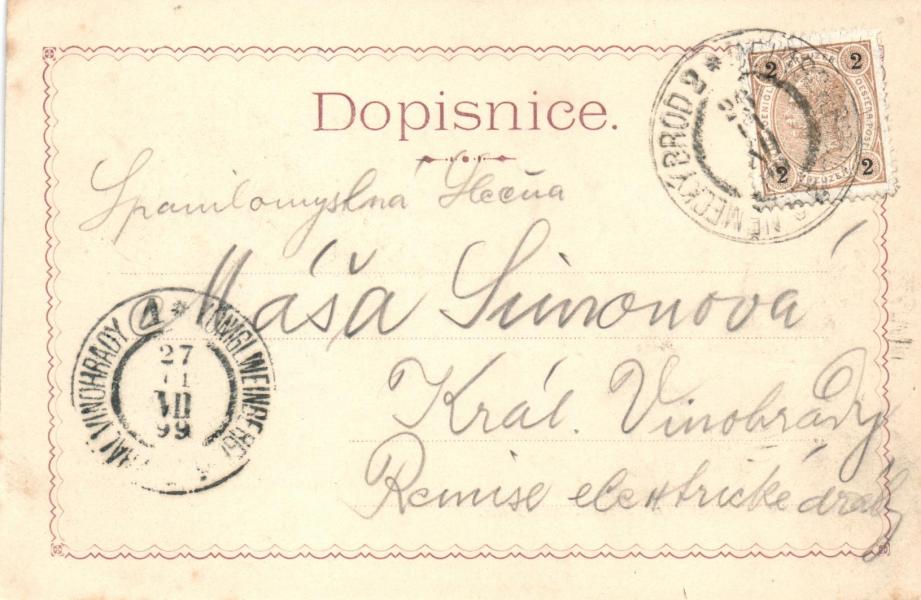 Dopisnice.
Spanilomyslná Slečna
Máša Simonová
Král. Vinohrady
Remise elektrické dráhy
NĚMECKÝ BROD 2 *
2 2
2 2
VINOHRADY 1 * KÖNIGL WEINBERGE
27
VII
99